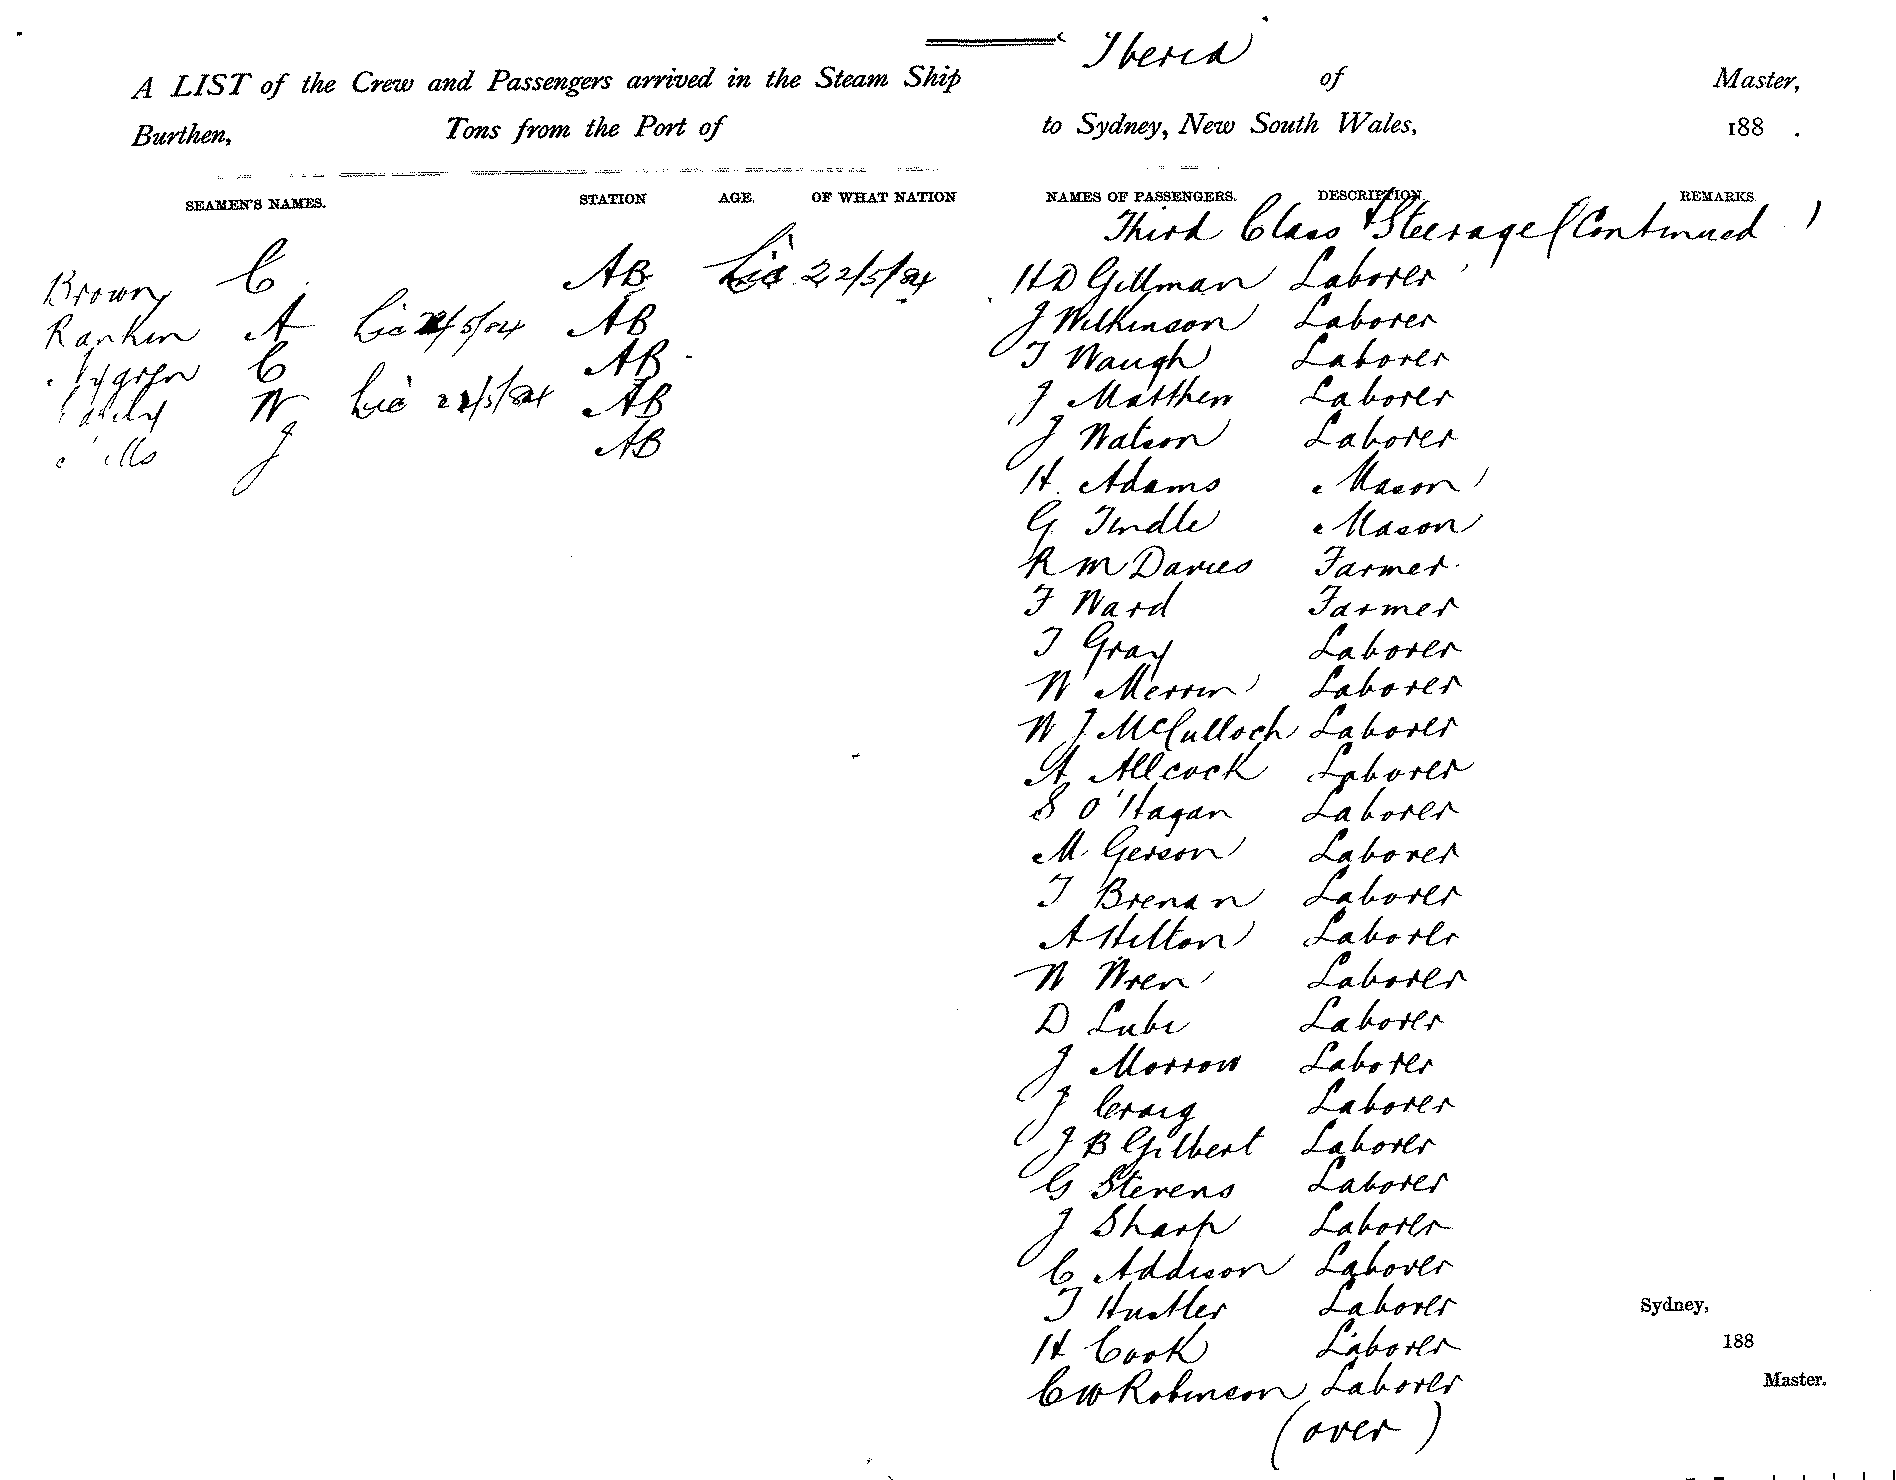 Iberia
A LIST of the Crew and Passengers arrived in the Steam Ship of Master,
Burthen, Tons from the Port of to Sydney, New South Wales, 188 .
SEAMEN'S NAMES. STATION AGE. OF WHAT NATION
Brown C AB Lic 22/5/84
Rankin A Lic 22/5/84 AB
C AB
W Lic 22/5/84 AB
J AB
NAMES OF PASSENGERS. DESCRIPTION REMARKS
Third Class & Steerage (Continued)
H D Gillman Laborer
J Wilkinson Laborer
T Waugh Laborer
J Matthew Laborer
J Watson Laborer
H Adams Mason
G Tindle Mason
R M Davies Farmer
F Ward Farmer
T Gray Laborer
W Merrin Laborer
W J McCulloch Laborer
A Allcock Laborer
S O'Hagan Laborer
M Gerson Laborer
T Brenan Laborer
A Hilton Laborer
W Wren Laborer
D Lube Laborer
J Morrow Laborer
J Craig Laborer
J B Gilbert Laborer
G Stevens Laborer
J Sharp Laborer
C Addison Laborer
T Hustler Laborer
H Cook Laborer
C W Robinson Laborer
(over)
Sydney,
188
Master.